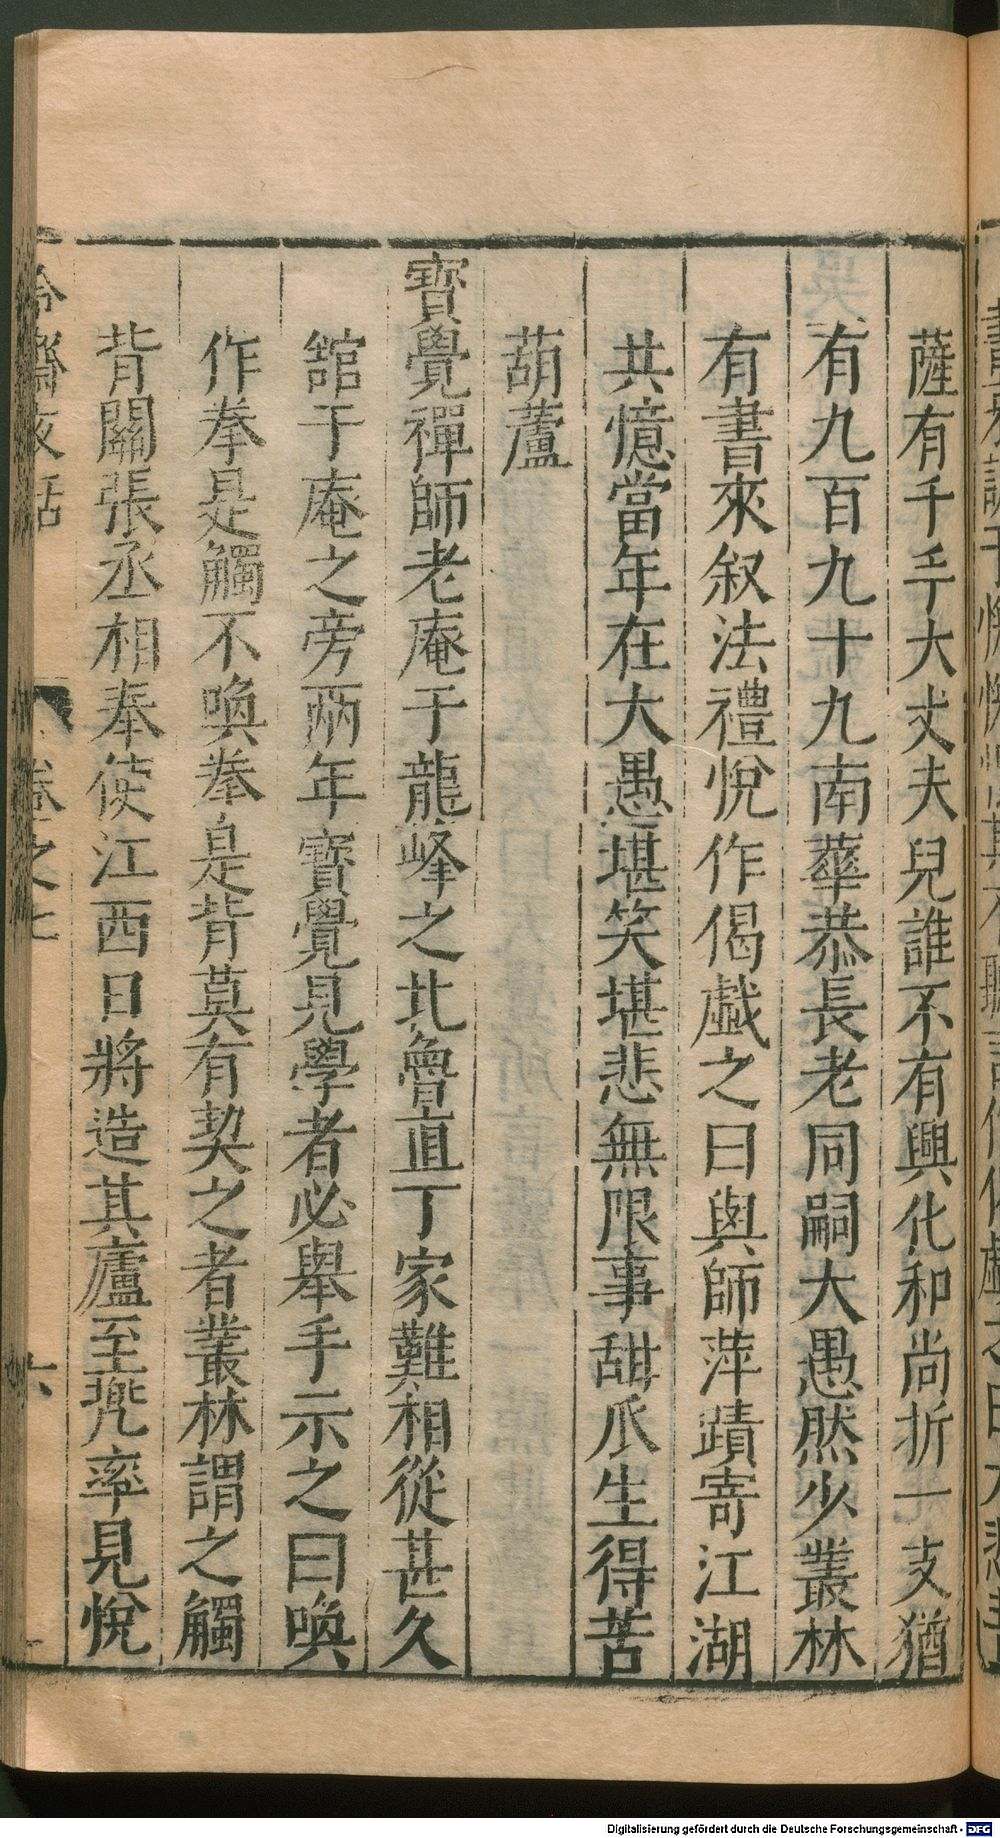 薩有千手大丈夫兒誰不有興化和尚折一支猶
有九百九十九南華恭長老同嗣大愚然少叢林
有書來叙法禮悅作偈戲之曰與師萍蹟寄江湖
共憶當年在大愚堪笑堪悲無限事甜瓜生得苦
葫蘆
寶覺禪師老庵于龍峰之北魯直丁家難相從甚久
館于庵之旁兩年寶覺見學者必舉手示之曰喚
作拳是觸不喚拳是背莫有契之者叢林謂之觸
背關張丞相奉使江西日將造其廬至兜率見悅
冷齋夜話 卷之七 六
Digitalisierung gefördert durch die Deutsche Forschungsgemeinschaft - DFG